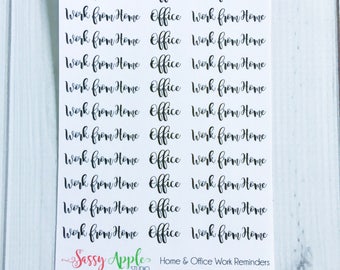 Work from Home Office Work from Home
Work from Home Office Work from Home
Work from Home Office Work from Home
Work from Home Office Work from Home
Work from Home Office Work from Home
Work from Home Office Work from Home
Work from Home Office Work from Home
Work from Home Office Work from Home
Work from Home Office Work from Home
Sassy Apple
STUDIO
Home & Office Work Reminders